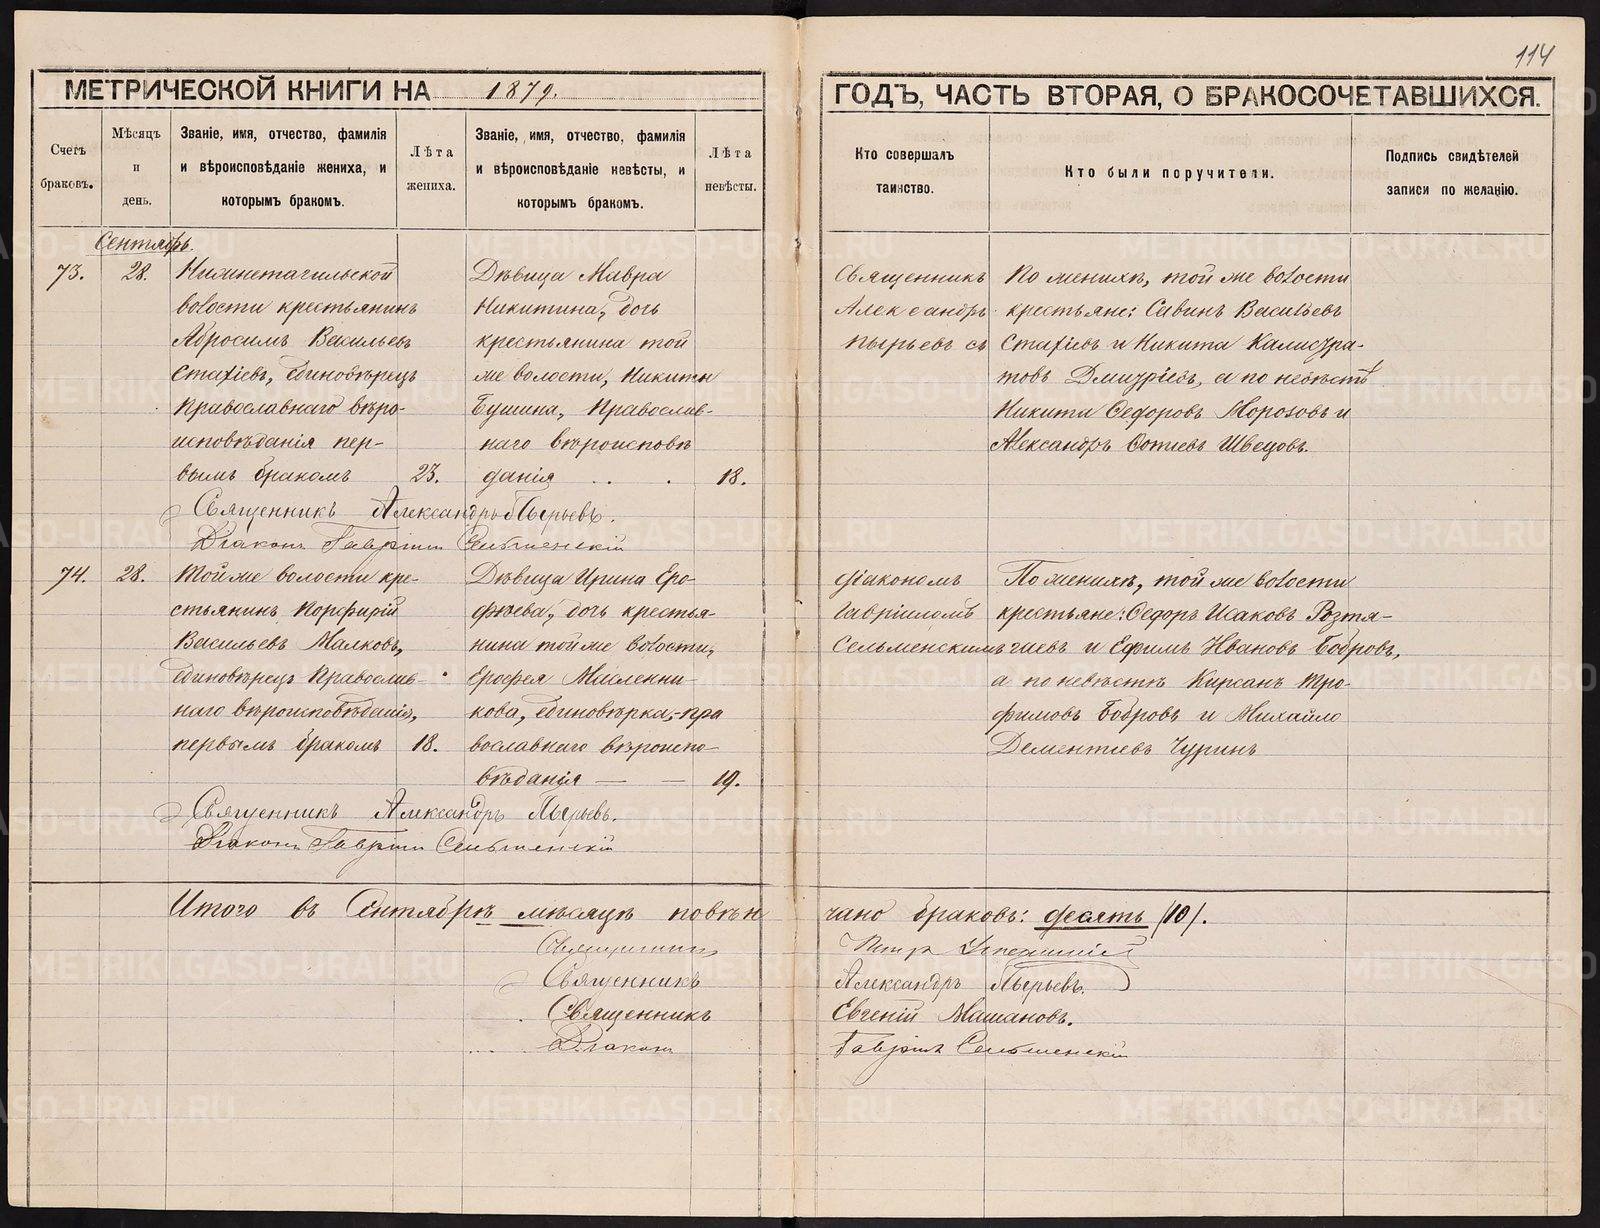 114
МЕТРИЧЕСКОЙ КНИГИ НА 1879.
ГОДЪ, ЧАСТЬ ВТОРАЯ, О БРАКОСОЧЕТАВШИХСЯ.
Счетъ браковъ.
Мѣсяцъ и день.
Званіе, имя, отчество, фамилія
и вѣроисповѣданіе жениха, и
которымъ бракомъ.
Лѣта жениха.
Званіе, имя, отчество, фамилія
и вѣроисповѣданіе невѣсты, и
которымъ бракомъ.
Лѣта невѣсты.
Кто совершалъ
таинство.
Кто были поручители.
Подпись свидѣтелей
записи по желанію.
Сентябрь.
73.
28.
Нижнетагильской
волости крестьянинъ
Абросимъ Васильевъ
Стахіевъ, единовѣрецъ
Православнаго вѣро-
исповѣданія пер-
вымъ бракомъ
23.
Дѣвица Мавра
Никитина, дочь
крестьянина той
же волости, Никиты
Бушина, Православ-
наго вѣроисповѣ
данія
18.
Священникъ
Александръ
Пырьевъ съ
По женихѣ, той же волости
крестьяне: Савинъ Васильевъ
Стахіевъ и Никита Калистра-
товъ Дмитріевъ, а по невѣстѣ
Никита Ѳедоровъ Морозовъ и
Александръ Фотіевъ Швецовъ.
Священникъ Александръ Пырьевъ.
Діаконъ Гавріилъ Сельменскій
74.
28.
Той же волости кре-
стьянинъ Порфирій
Васильевъ Малковъ,
единовѣрецъ Православ-
наго вѣроисповѣданія,
первымъ бракомъ
18.
Дѣвица Ирина Еро-
фѣева, дочь крестья-
нина той же волости,
Ерофея Масленни-
кова, единовѣрка, пра
вославнаго вѣроиспо-
вѣданія
19.
діакономъ
Гавріиломъ
Сельменскимъ
По женихѣ, той же волости
крестьяне: Ѳедоръ Исаковъ Розтя-
гаевъ и Ефимъ Ивановъ Бобровъ,
а по невѣстѣ Кирсанъ Тро-
фимовъ Бобровъ и Михайло
Дементіевъ Чуринъ
Священникъ Александръ Пырьевъ.
Діаконъ Гавріилъ Сельменскій
Итого въ Сентябрѣ мѣсяцѣ повѣн
чано браковъ: десять /10/.
Священникъ Петръ
Священникъ Александръ Пырьевъ.
Священникъ Евгеній Машановъ.
Діаконъ Гавріилъ Сельменскій
METRIKI.GASO-URAL.RU